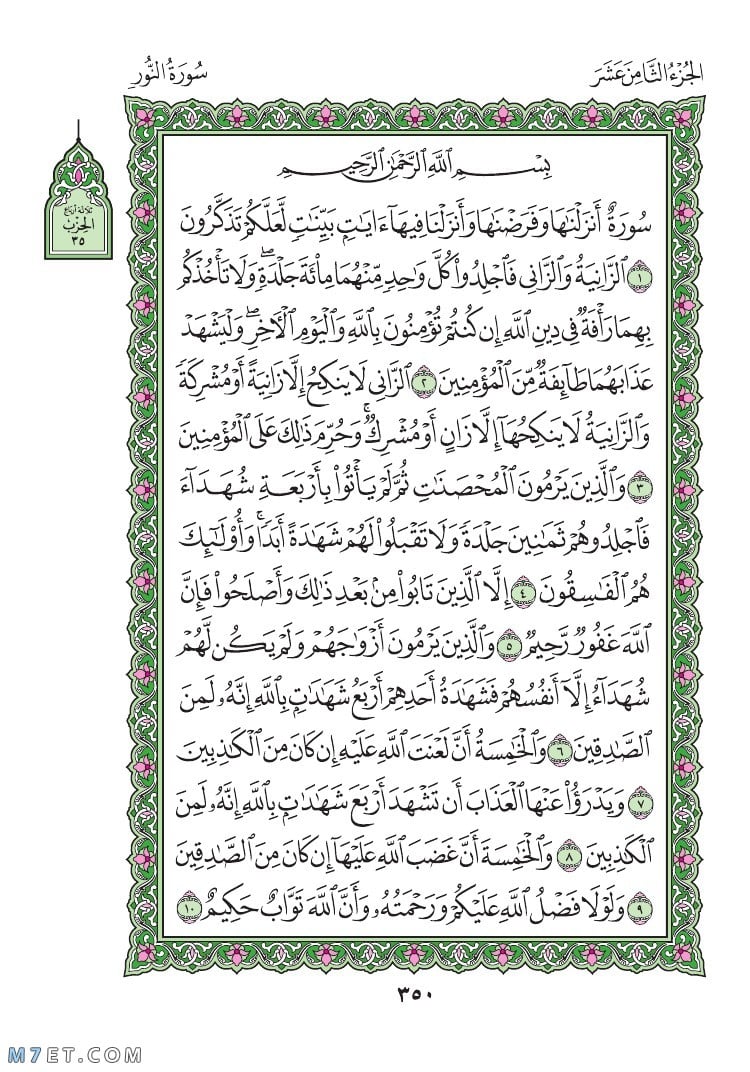 الجُزْءُ الثَّامِنَ عَشَرَ
سُورَةُ النُّورِ
ثلاثة أرباع
الحزب
٣٥
بِسْمِ ٱللَّهِ ٱلرَّحْمَٰنِ ٱلرَّحِيمِ
سُورَةٌ أَنزَلْنَٰهَا وَفَرَضْنَٰهَا وَأَنزَلْنَا فِيهَآ ءَايَٰتٍۭ بَيِّنَٰتٍ لَّعَلَّكُمْ تَذَكَّرُونَ
١ ٱلزَّانِيَةُ وَٱلزَّانِى فَٱجْلِدُوا۟ كُلَّ وَٰحِدٍ مِّنْهُمَا مِا۟ئَةَ جَلْدَةٍ ۖ وَلَا تَأْخُذْكُم
بِهِمَا رَأْفَةٌ فِى دِينِ ٱللَّهِ إِن كُنتُمْ تُؤْمِنُونَ بِٱللَّهِ وَٱلْيَوْمِ ٱلْءَاخِرِ ۖ وَلْيَشْهَدْ
عَذَابَهُمَا طَآئِفَةٌ مِّنَ ٱلْمُؤْمِنِينَ ٢ ٱلزَّانِى لَا يَنكِحُ إِلَّا زَانِيَةً أَوْ مُشْرِكَةً
وَٱلزَّانِيَةُ لَا يَنكِحُهَآ إِلَّا زَانٍ أَوْ مُشْرِكٌ ۚ وَحُرِّمَ ذَٰلِكَ عَلَى ٱلْمُؤْمِنِينَ
٣ وَٱلَّذِينَ يَرْمُونَ ٱلْمُحْصَنَٰتِ ثُمَّ لَمْ يَأْتُوا۟ بِأَرْبَعَةِ شُهَدَآءَ
فَٱجْلِدُوهُمْ ثَمَٰنِينَ جَلْدَةً وَلَا تَقْبَلُوا۟ لَهُمْ شَهَٰدَةً أَبَدًا ۚ وَأُو۟لَٰٓئِكَ
هُمُ ٱلْفَٰسِقُونَ ٤ إِلَّا ٱلَّذِينَ تَابُوا۟ مِنۢ بَعْدِ ذَٰلِكَ وَأَصْلَحُوا۟ فَإِنَّ
ٱللَّهَ غَفُورٌ رَّحِيمٌ ٥ وَٱلَّذِينَ يَرْمُونَ أَزْوَٰجَهُمْ وَلَمْ يَكُن لَّهُمْ
شُهَدَآءُ إِلَّآ أَنفُسُهُمْ فَشَهَٰدَةُ أَحَدِهِمْ أَرْبَعُ شَهَٰدَٰتٍۭ بِٱللَّهِ إِنَّهُۥ لَمِنَ
ٱلصَّٰدِقِينَ ٦ وَٱلْخَٰمِسَةُ أَنَّ لَعْنَتَ ٱللَّهِ عَلَيْهِ إِن كَانَ مِنَ ٱلْكَٰذِبِينَ
٧ وَيَدْرَؤُا۟ عَنْهَا ٱلْعَذَابَ أَن تَشْهَدَ أَرْبَعَ شَهَٰدَٰتٍۭ بِٱللَّهِ إِنَّهُۥ لَمِنَ
ٱلْكَٰذِبِينَ ٨ وَٱلْخَٰمِسَةَ أَنَّ غَضَبَ ٱللَّهِ عَلَيْهَآ إِن كَانَ مِنَ ٱلصَّٰدِقِينَ
٩ وَلَوْلَا فَضْلُ ٱللَّهِ عَلَيْكُمْ وَرَحْمَتُهُۥ وَأَنَّ ٱللَّهَ تَوَّابٌ حَكِيمٌ ١٠
٣٥٠
M7ET.COM